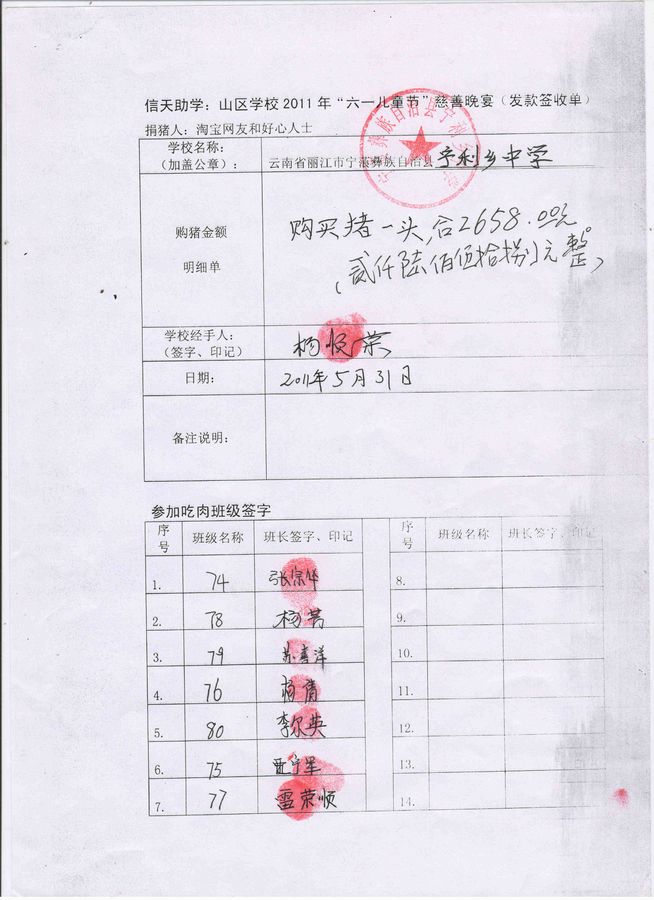 信天助学：山区学校2011年“六一儿童节”慈善晚宴（发款签收单）
捐猪人：淘宝网友和好心人士
学校名称：
（加盖公章）：
云南省丽江市宁蒗彝族自治县 宁利乡中学
彝族自治县宁利乡
购猪金额
明细单
购买猪一头，合2658.00元
（贰仟陆佰伍拾捌元整）
学校经手人：
（签字、印记）
杨悦荣
日期：
2011年5月31日
备注说明：
参加吃肉班级签字
序号 班级名称 班长签字、印记 序号 班级名称 班长签字、印记
1. 74 张宗华 8.
2. 78 杨芳 9.
3. 79 苏喜洋 10.
4. 76 杨倩 11.
5. 80 李尔英 12.
6. 75 宁军 13.
7. 77 雷荣顺 14.